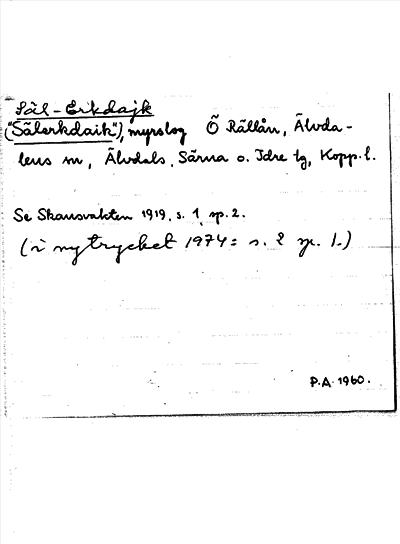 Säl-Erkdajk
("Sälerkdaik"), myrslog Ö Rällån, Älvda-
lens sn, Älvdals, Särna o. Idre tg, Kopp. l.
Se Skansvakten 1919, s. 1, sp. 2.
(i nytrycket 1974: s. 2 sp. 1.)
P.A. 1960.